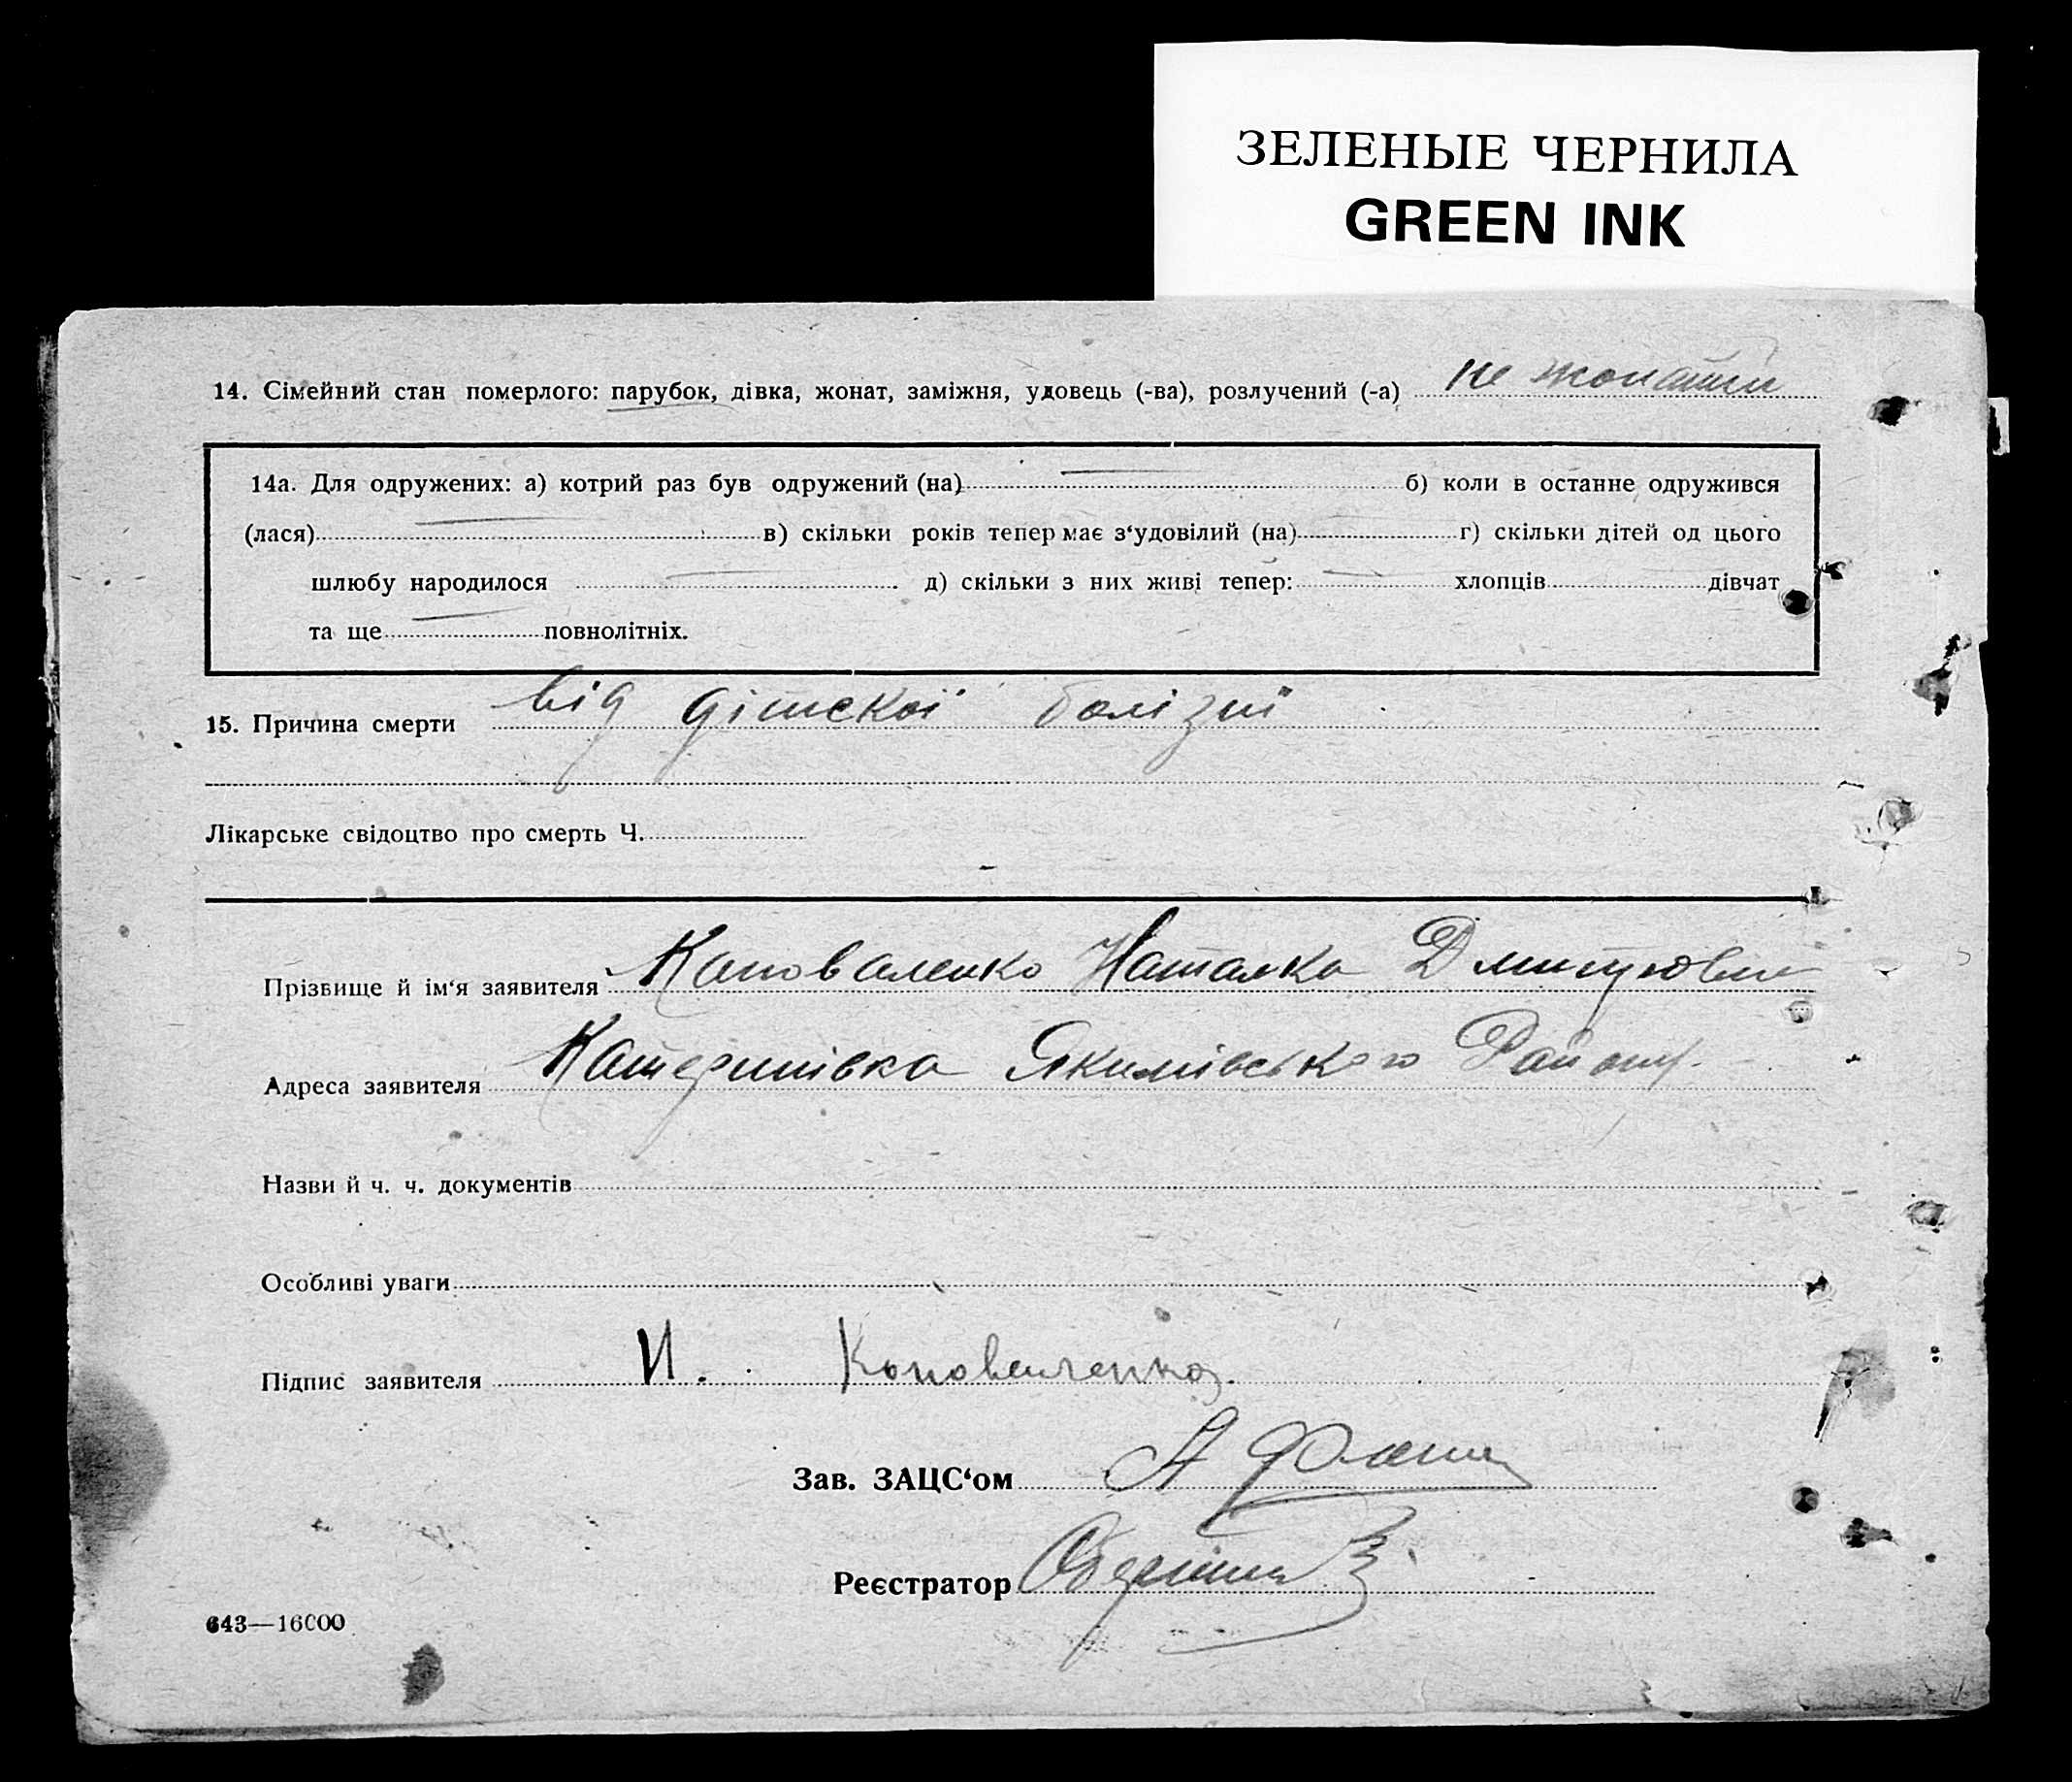 ЗЕЛЕНЫЕ ЧЕРНИЛА
GREEN INK
14. Сімейний стан померлого: парубок, дівка, жонат, заміжня, удовець (-ва), розлучений (-а) не жонатий
14а. Для одружених: а) котрий раз був одружений (на) б) коли в останне одружився
(лася) в) скільки років тепер має з‘удовілий (на) г) скільки дітей од цього
шлюбу народилося д) скільки з них живі тепер: хлопців дівчат
та ще повнолітніх.
15. Причина смерти від дітскої болізні
Лікарське свідоцтво про смерть Ч.
Прізвище й ім‘я заявителя Коноваленко Наталка
Адреса заявителя Катеринівка Якимівського Району.
Назви й ч. ч. документів
Особливі уваги
Підпис заявителя И. Коноваленко.
Зав. ЗАЦС‘ом А
Реєстратор
643—16000